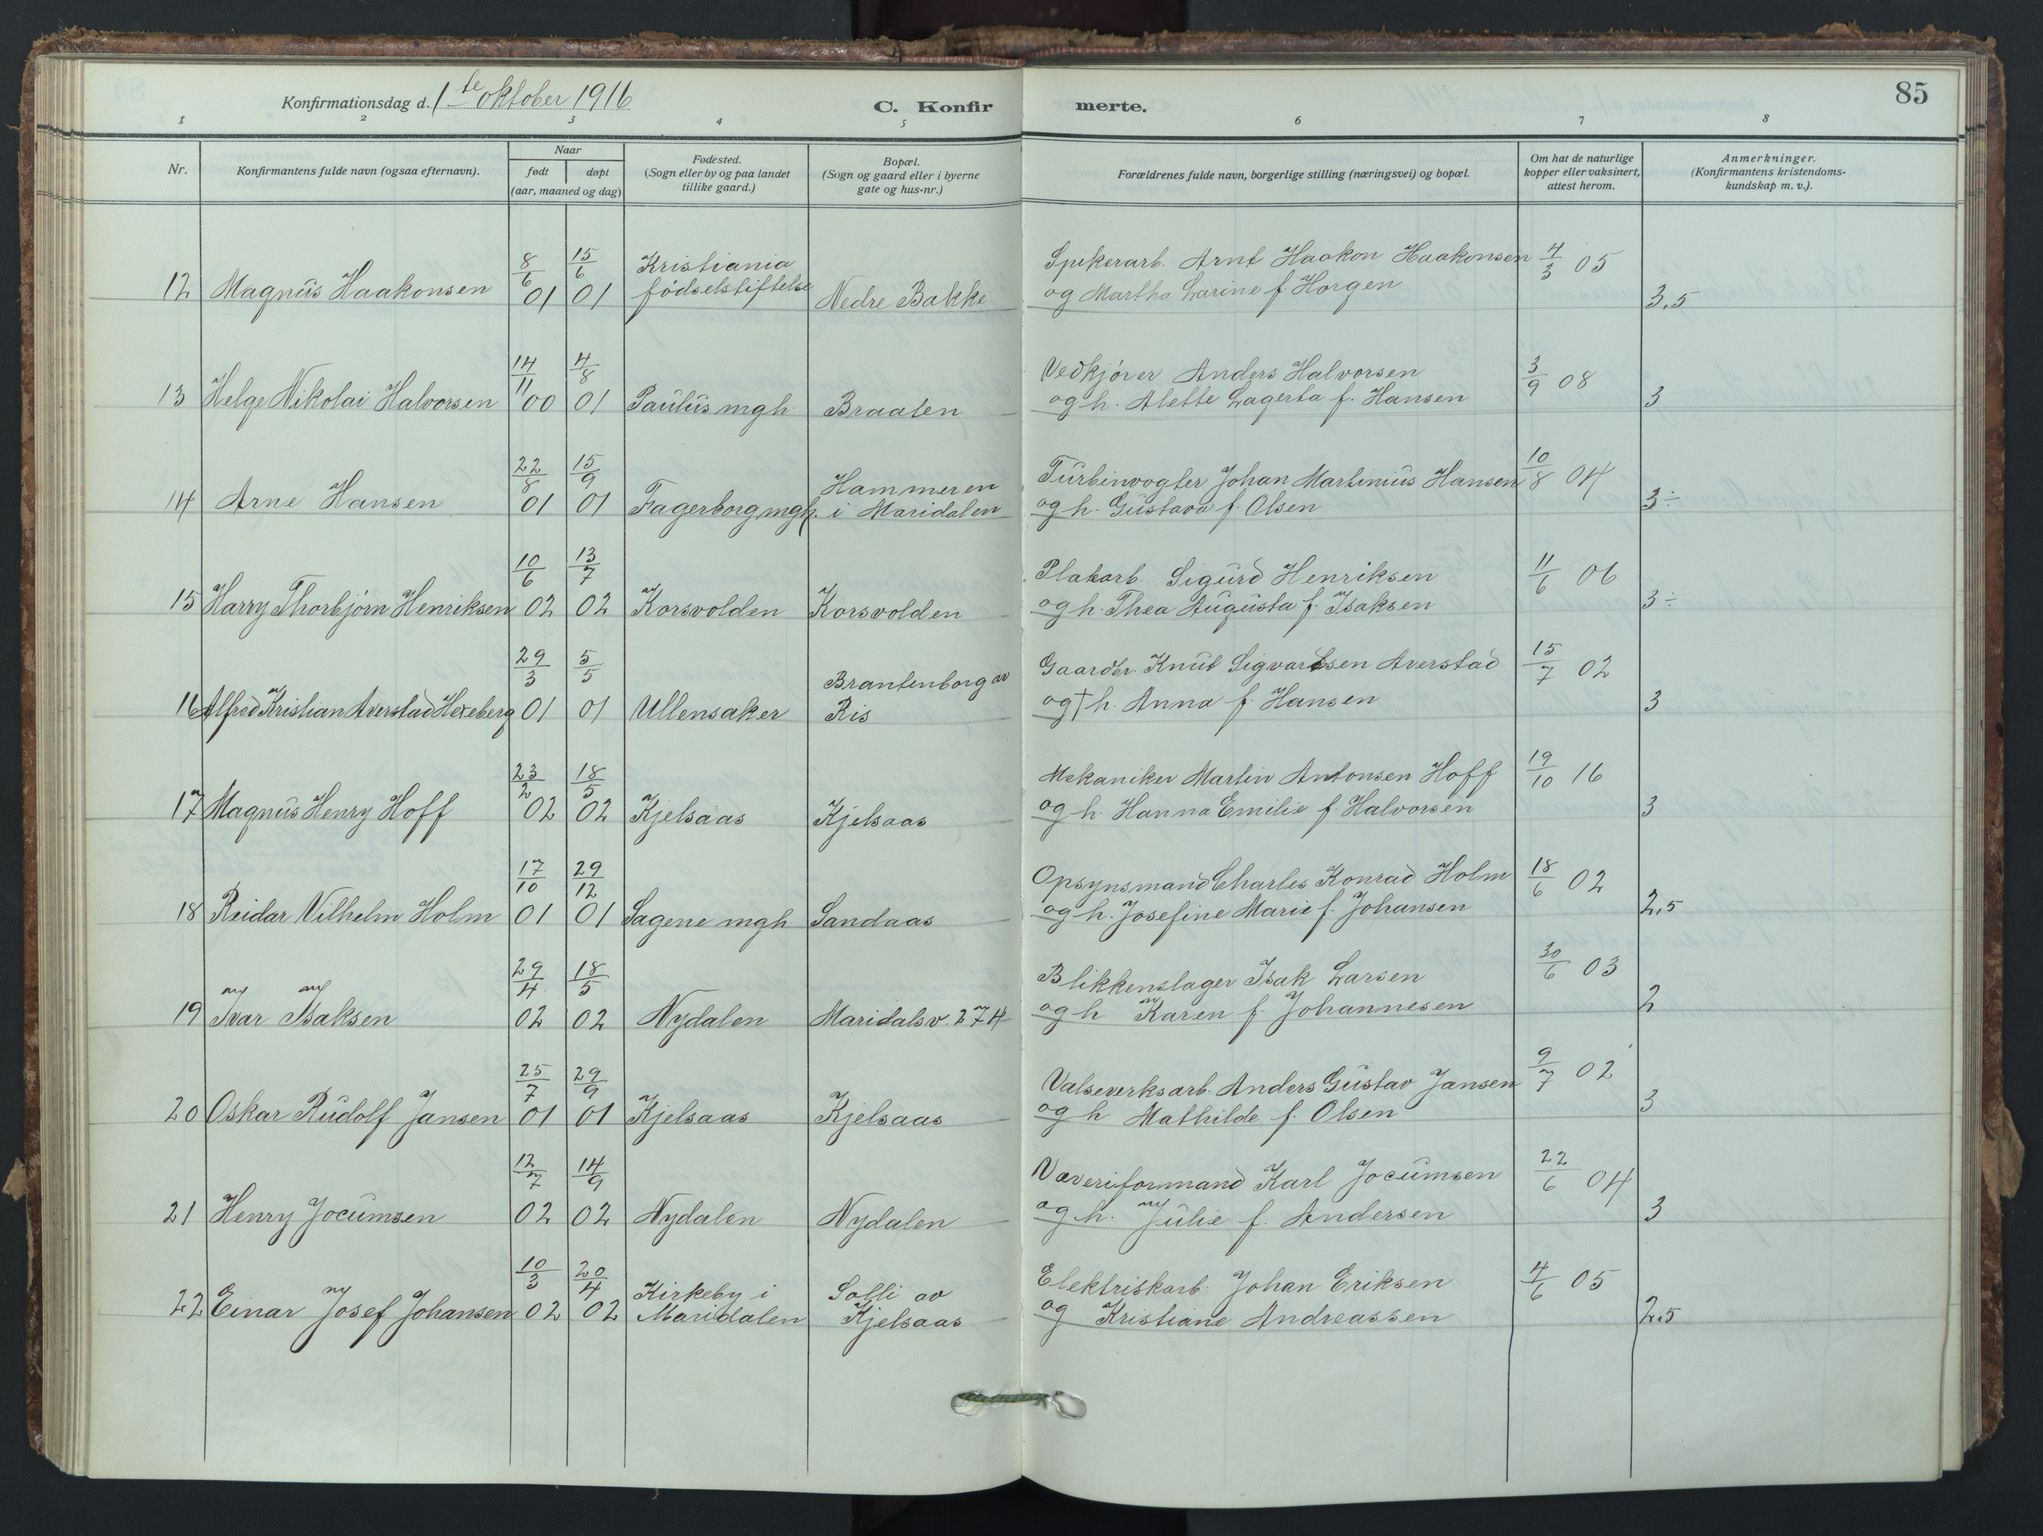 Konfirmationsdag d. 1ste oktober 1916
C. Konfirmerte.
85
1 2 3 4 5 6 7 8
Nr.
Konfirmantens fulde navn (ogsaa efternavn).
Naar
født døpt
(aar, maaned og dag)
Fødested.
(Sogn eller by og paa landet
tillike gaard.)
Bopæl.
(Sogn og gaard eller i byerne
gate og hus-nr.)
Forældrenes fulde navn, borgerlige stilling (næringsvei) og bopæl.
Om hat de naturlige
kopper eller vaksinert,
attest herom.
Anmerkninger.
(Konfirmantens kristendoms-
kundskap m. v.).
12 Magnus Haakonsen 8/6 01 15/6 01 Kristiania fødselstiftelse Nedre Bakke
Spikerarb. Arnt Haakon Haakonsen 4/3 05
og Martha Larine f. Horgen 3,5
13 Helge Nikolai Halvorsen 14/11 00 4/8 01 Paulus mgh. Braaten
Vedkjører Anders Halvorsen 3/9 08
og h. Alette Lagerta f. Hansen 3
14 Arne Hansen 22/8 01 15/9 01 Fagerborg mgh. Hammeren i Maridalen
Turbinvogter Johan Martinius Hansen 10/8 04
og h. Gustava f. Olsen 3÷
15 Harry Thorbjørn Henriksen 10/6 02 13/7 02 Korsvolden Korsvolden
Platearb. Sigurd Henriksen 11/6 06
og h. Thea Augusta f. Isaksen 3÷
16 Alfred Kristian Averstad Hexeberg 29/3 01 5/5 01 Ullensaker Brantenborg av Ris
Gaardbr. Knut Sigvartsen Averstad 15/7 02
og † h. Anna f. Hansen 3
17 Magnus Henry Hoff 23/2 02 18/5 02 Kjelsaas Kjelsaas
Mekaniker Martin Antonsen Hoff 19/10 16
og h. Hanna Emilie f. Halvorsen 3
18 Reidar Vilhelm Holm 17/10 01 29/12 01 Sagene mgh Sandaas
Opsynsmand Charles Konrad Holm 18/6 02
og h. Josefine Marie f. Johansen 2,5
19 Ivar Isaksen 29/4 02 18/5 02 Nydalen Maridalsv. 274
Blikkenslager Isak Larsen 30/6 03
og h Karen f. Johannesen 2
20 Oskar Rudolf Jansen 25/7 01 29/9 01 Kjelsaas Kjelsaas
Valseverksarb. Anders Gustav Jansen 9/7 02
og h Mathilde f. Olsen 3
21 Henry Jocumsen 12/7 02 14/9 02 Nydalen Nydalen
Væveriformand Karl Jocumsen 22/6 04
og h. Julie f. Andersen 3
22 Einar Josef Johansen 10/3 02 20/4 02 Kirkeby i Maridalen Solli av Kjelsaas
Elektriskarb. Johan Eriksen 4/6 05
og Kristiane Andreassen 2,5